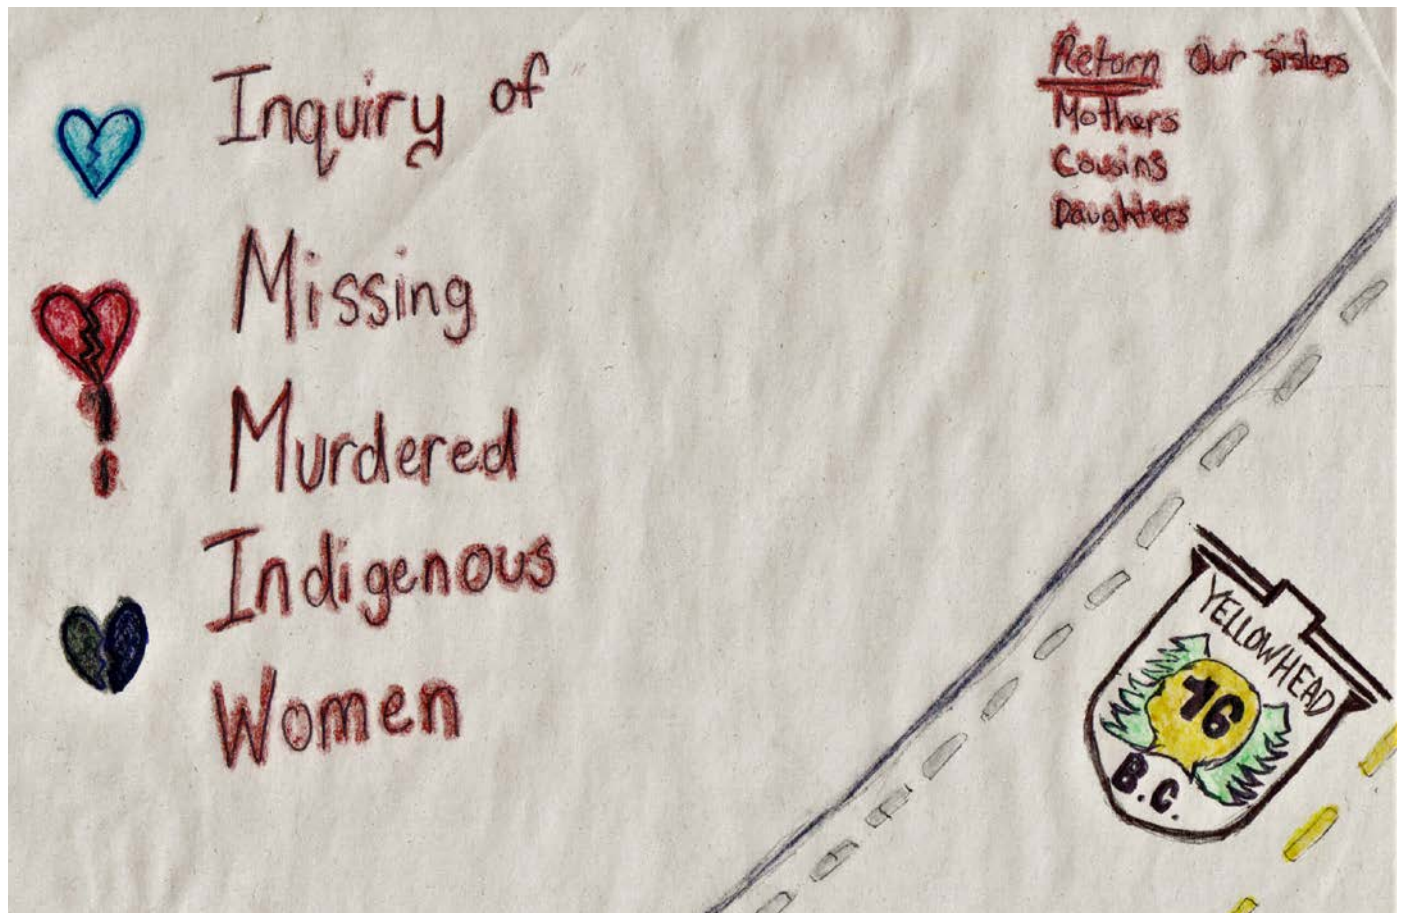 Inquiry of
Missing
Murdered
Indigenous
Women
Return Our sisters
Mothers
Cousins
Daughters
YELLOWHEAD
16
B.C.